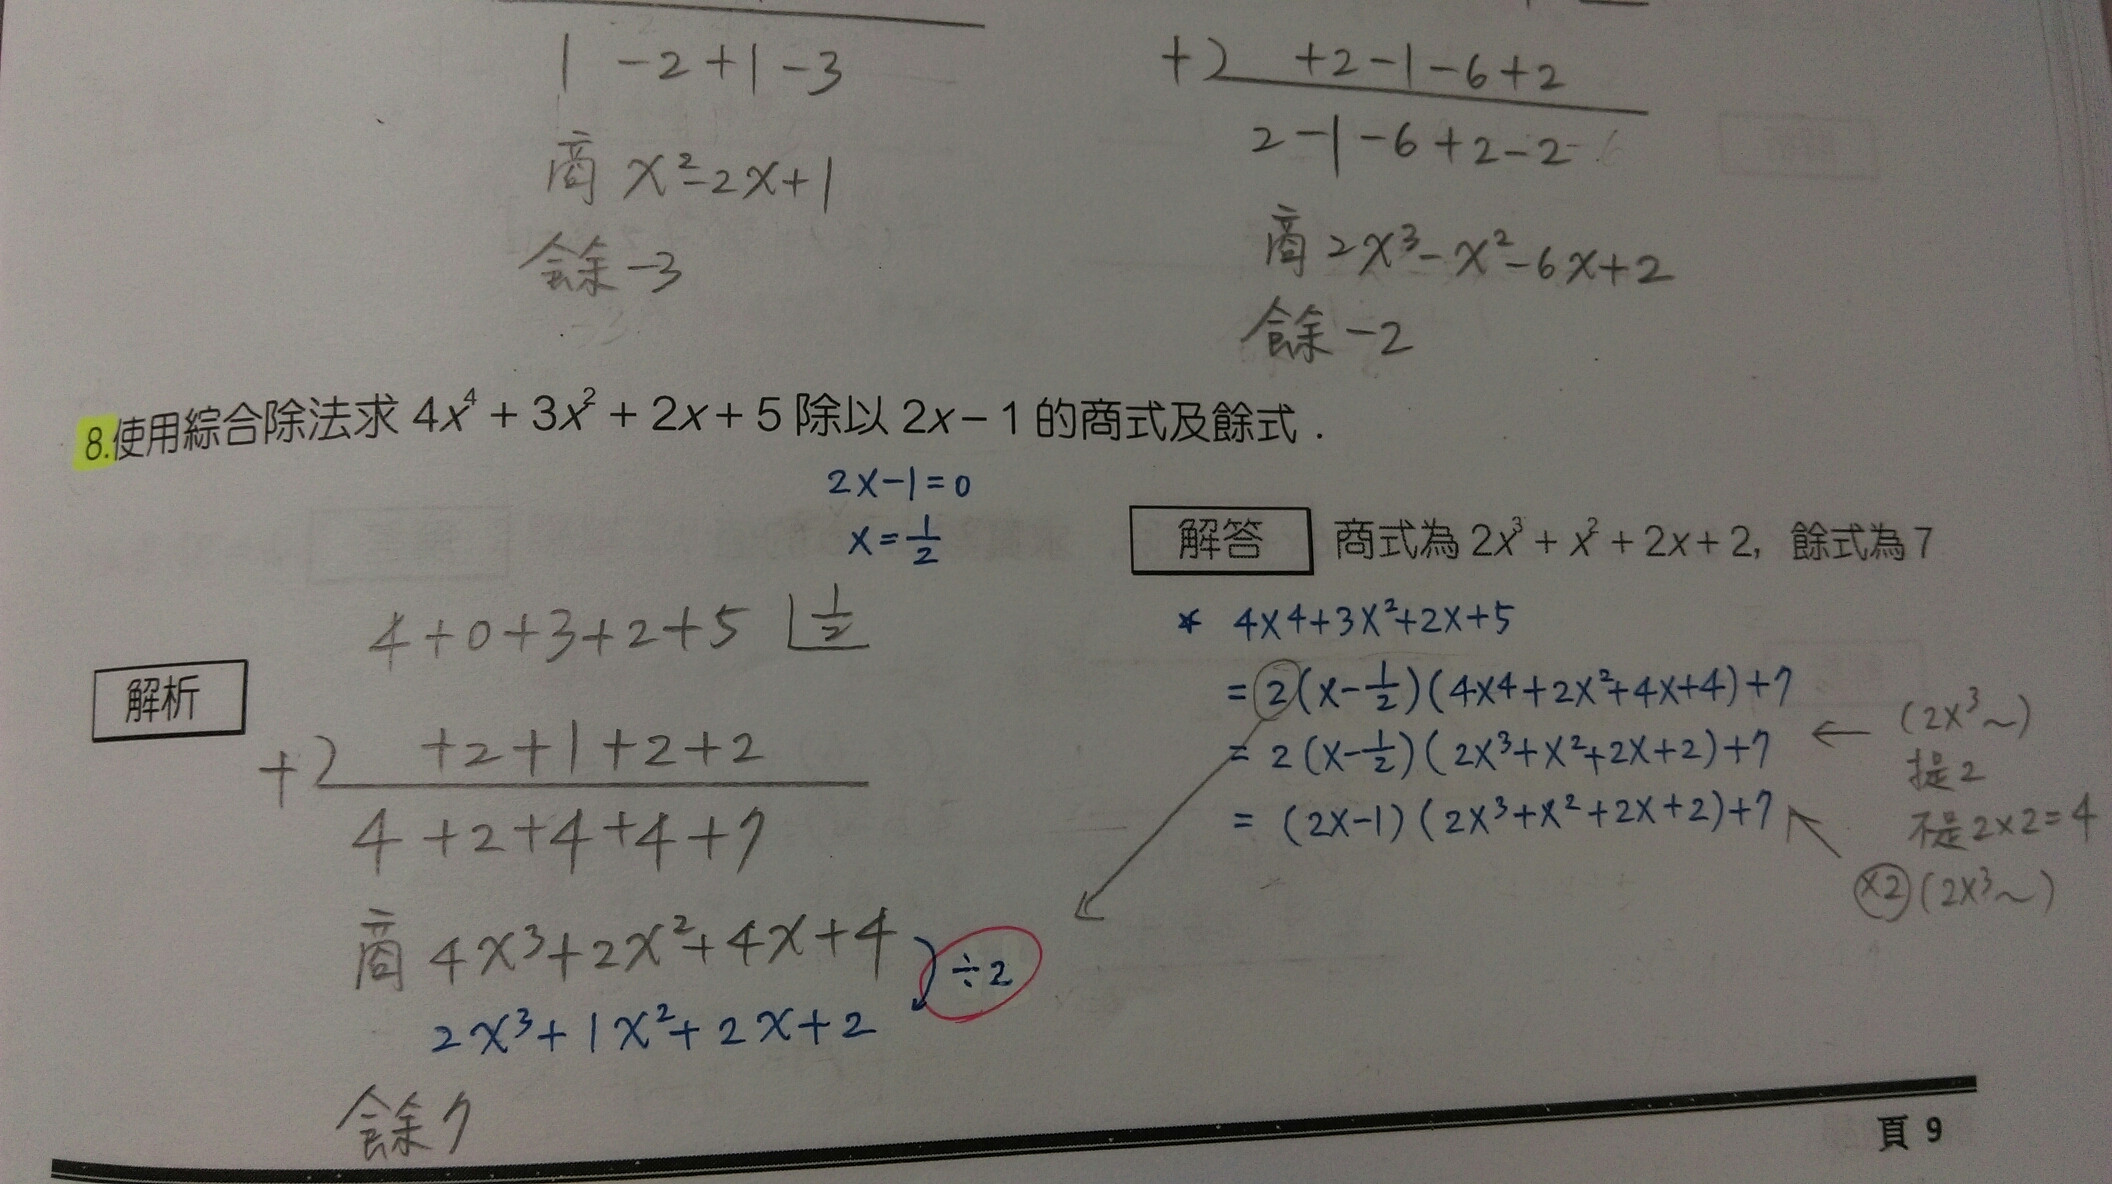 1 -2 +1 -3
商 x²-2x+1
餘 -3
+) +2 -1 -6 +2
2 -1 -6 +2 -2
商 2x³-x²-6x+2
餘 -2
8.使用綜合除法求 4x⁴ + 3x² + 2x + 5 除以 2x − 1 的商式及餘式 .
2x-1=0
x=1/2
解答 商式為 2x³ + x² + 2x + 2, 餘式為 7
解析
4+0+3+2+5 1/2
+) +2+1+2+2
4+2+4+4+7
商 4x³+2x²+4x+4
÷2
2x³+1x²+2x+2
餘 7
* 4x4+3x²+2x+5
= 2(x-1/2)(4x4+2x²+4x+4)+7
= 2(x-1/2)(2x³+x²+2x+2)+7
= (2x-1)(2x³+x²+2x+2)+7
← (2x³~)
提2
不是2×2=4
×2 (2x³~)
頁 9